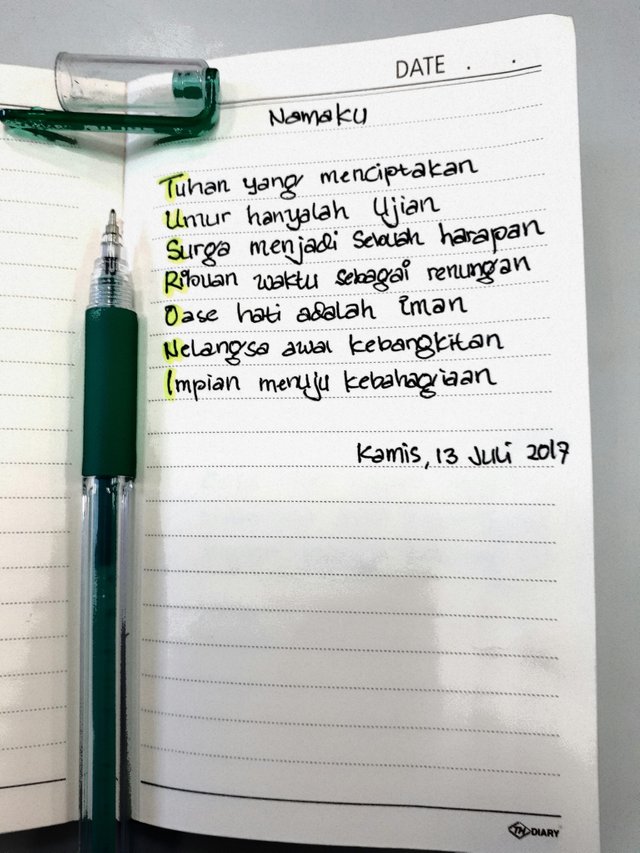 DATE . .
Namaku
Tuhan yang menciptakan
Umur hanyalah Ujian
Surga menjadi Sebuah harapan
Ribuan waktu sebagai renungan
Oase hati adalah Iman
Nelangsa awal kebangkitan
Impian menuju kebahagiaan
Kamis, 13 Juli 2017
TH DIARY